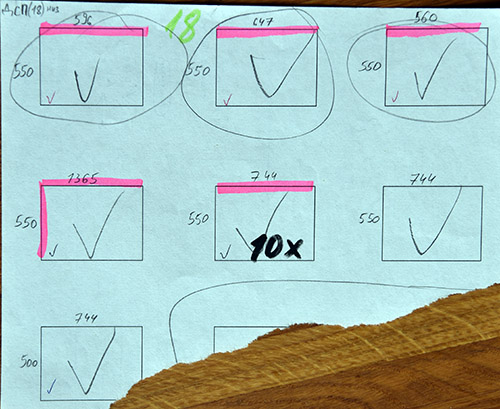 ДСП(18) низ
18
596
550
647
550
560
550
1365
550
744
550
10x
744
550
744
500